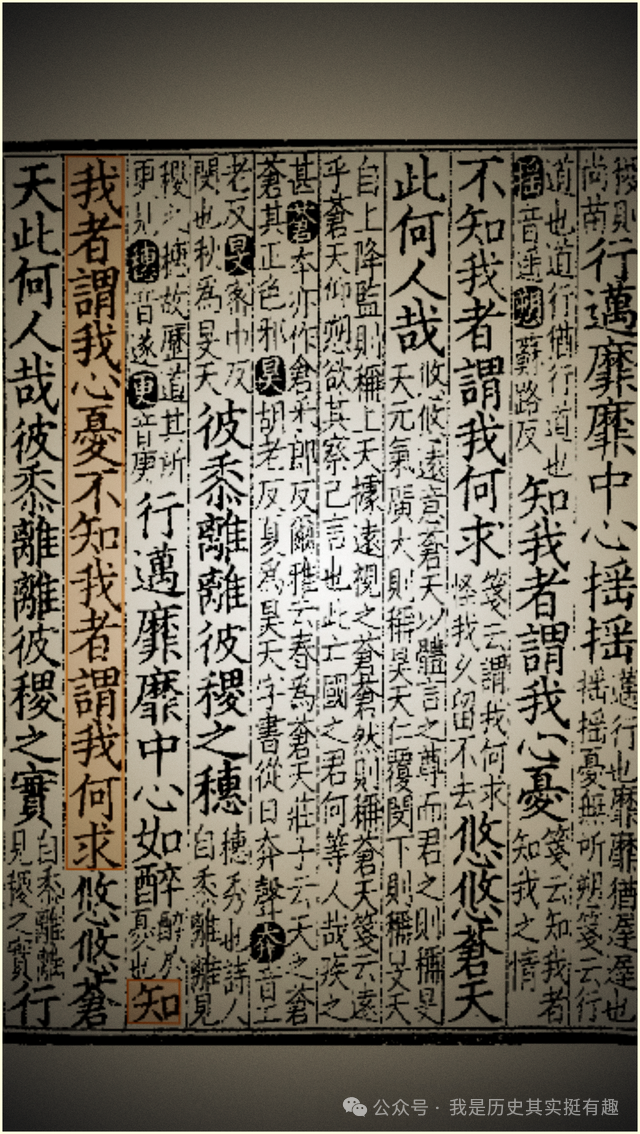 稷則
尚苗
行邁靡靡中心揺揺
邁行也靡靡猶遲遲也
揺揺憂無所朔箋云行
道也道行猶行道也
揺音遥朔蘇路反
知我者謂我心憂
箋云知我者
知我之情
不知我者謂我何求
箋云謂我何求
怪我久留不去
悠悠蒼天
此何人哉
悠悠遠意蒼天以體言之尊而君之則稱昊
天元氣廣大則稱昊天仁覆閔下則稱旻天
自上降監則稱上天據遠視之蒼蒼然則稱蒼天箋云遠
乎蒼天仰愬欲其察己言也此亡國之君何等人哉疾之
甚蒼本亦作倉采郎反爾雅云春爲蒼天莊子云天之蒼
蒼其正色邪昊胡老反夏爲昊天字書從日夲聲夲音土
老反旻密巾反
閔也秋爲旻天
彼黍離離彼稷之穗
穗秀也詩人
自黍離離見
稷之穗故歷道其所
更見穗音遂更音庚
行邁靡靡中心如醉
醉於
憂也
知
我者謂我心憂不知我者謂我何求悠悠蒼
天此何人哉彼黍離離彼稷之實
自黍離離
見稷之實
行
公众号 · 我是历史其实挺有趣